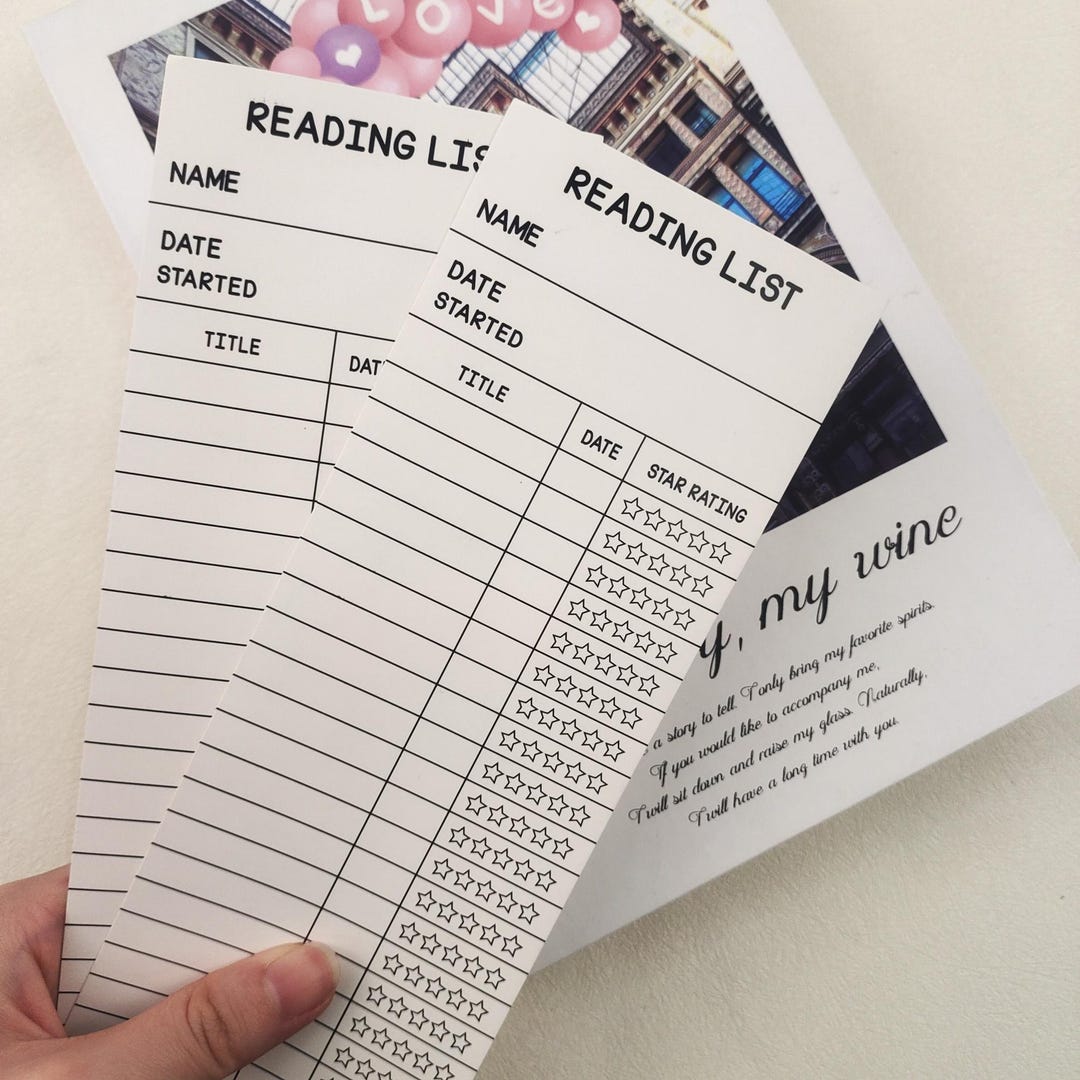 Love
READING LIS
NAME
DATE
STARTED
TITLE
DAT
READING LIST
NAME
DATE
STARTED
TITLE
DATE
STAR RATING
y, my wine
a story to tell. I only bring my favorite spirits.
If you would like to accompany me,
I will sit down and raise my glass. Naturally,
I will have a long time with you.